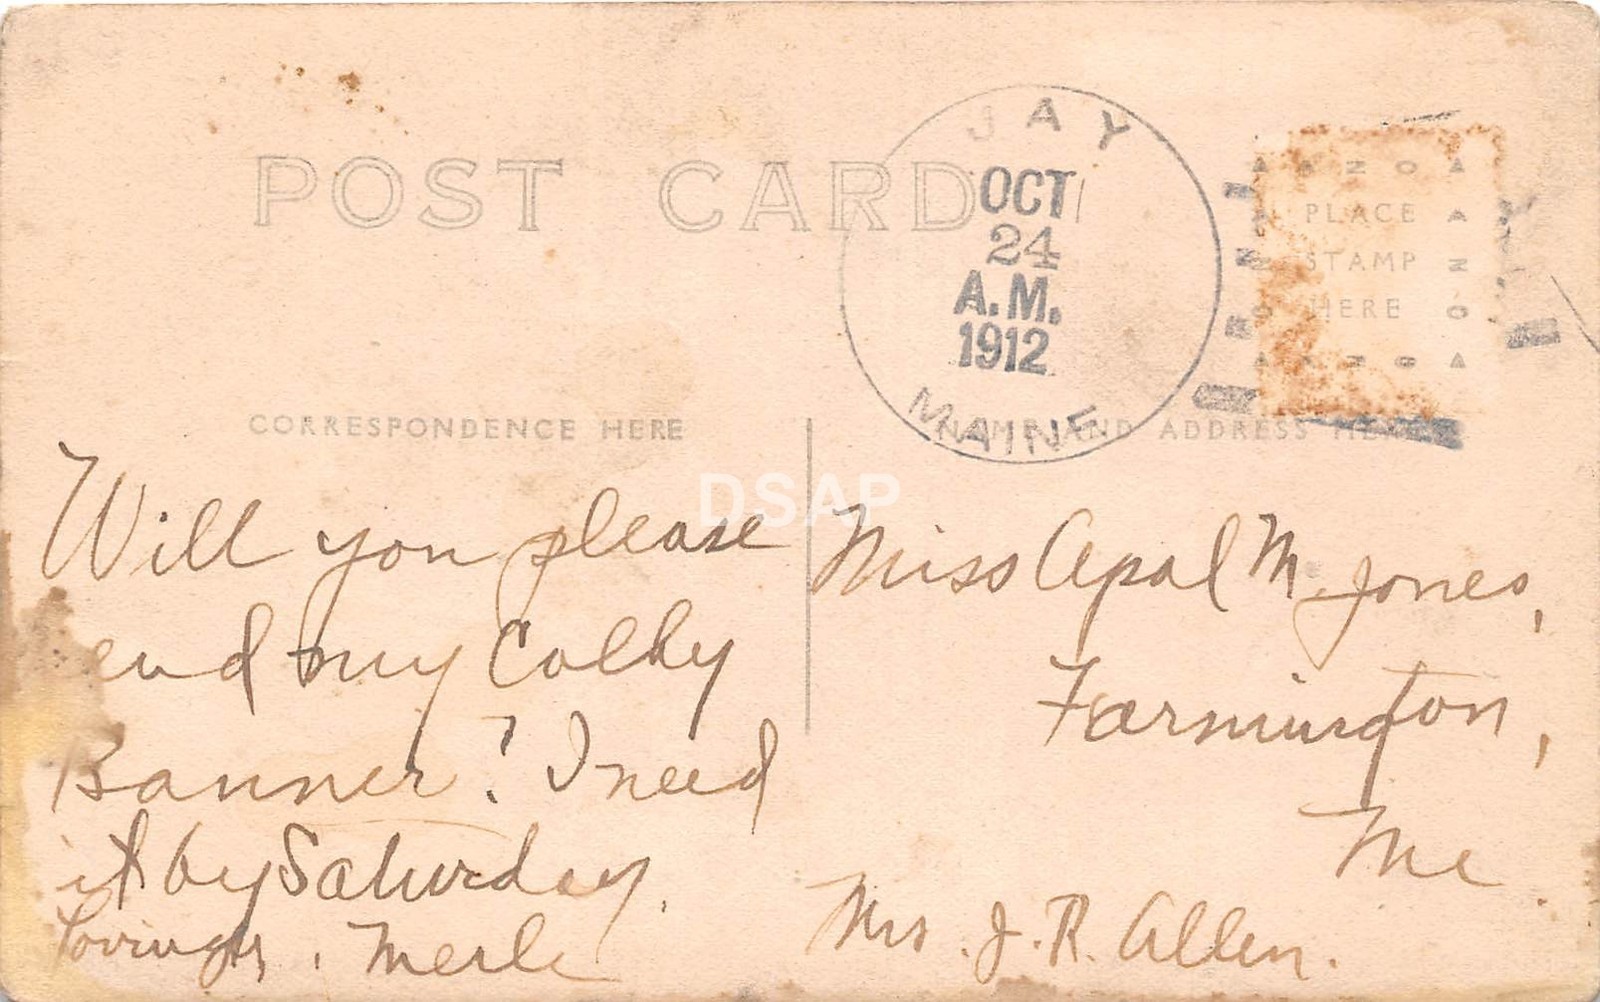 POST CARD
JAY
OCT
24
A.M.
1912
MAINE
PLACE
STAMP
HERE
CORRESPONDENCE HERE
NAME AND ADDRESS HERE
DSAP
Will you please
end my Colby
Banner? I need
it by Saturday.
Lovingly, Merle
Miss Opal M. Jones,
Farmington,
Me.
Mrs. J. R. Allen.